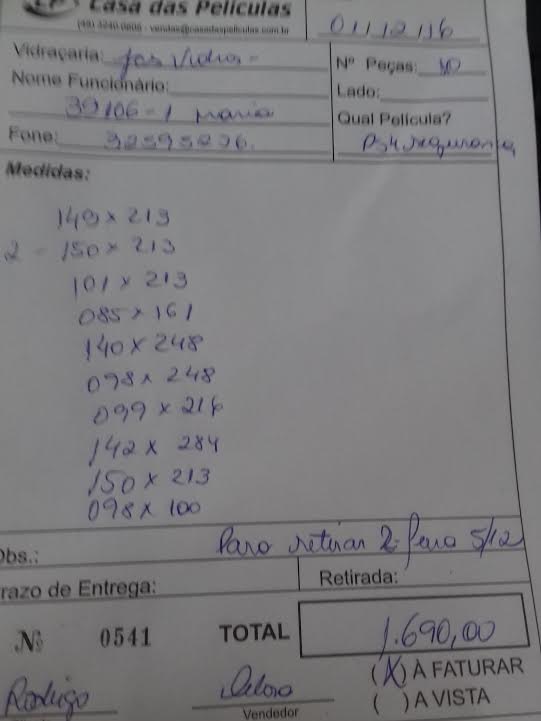 Casa das Películas
(48) 3240-0808 - vendas@casadaspeliculas.com.br
01/12/16
Vidraçaria: Jas Vidros
Nº Peças: 10
Nome Funcionário:
Lado:
39106-1 Maria
Qual Película?
Fone: 32595276
PS4 segurança
Medidas:
149 x 213
2 - 150 x 213
101 x 213
085 x 161
140 x 248
098 x 248
099 x 216
142 x 284
150 x 213
098 x 100
Obs.: Para retirar 2ª feira 5/12
razo de Entrega:
Retirada:
Nº 0541 TOTAL 1.690,00
(X) À FATURAR
Rodrigo
( ) A VISTA
Vendedor